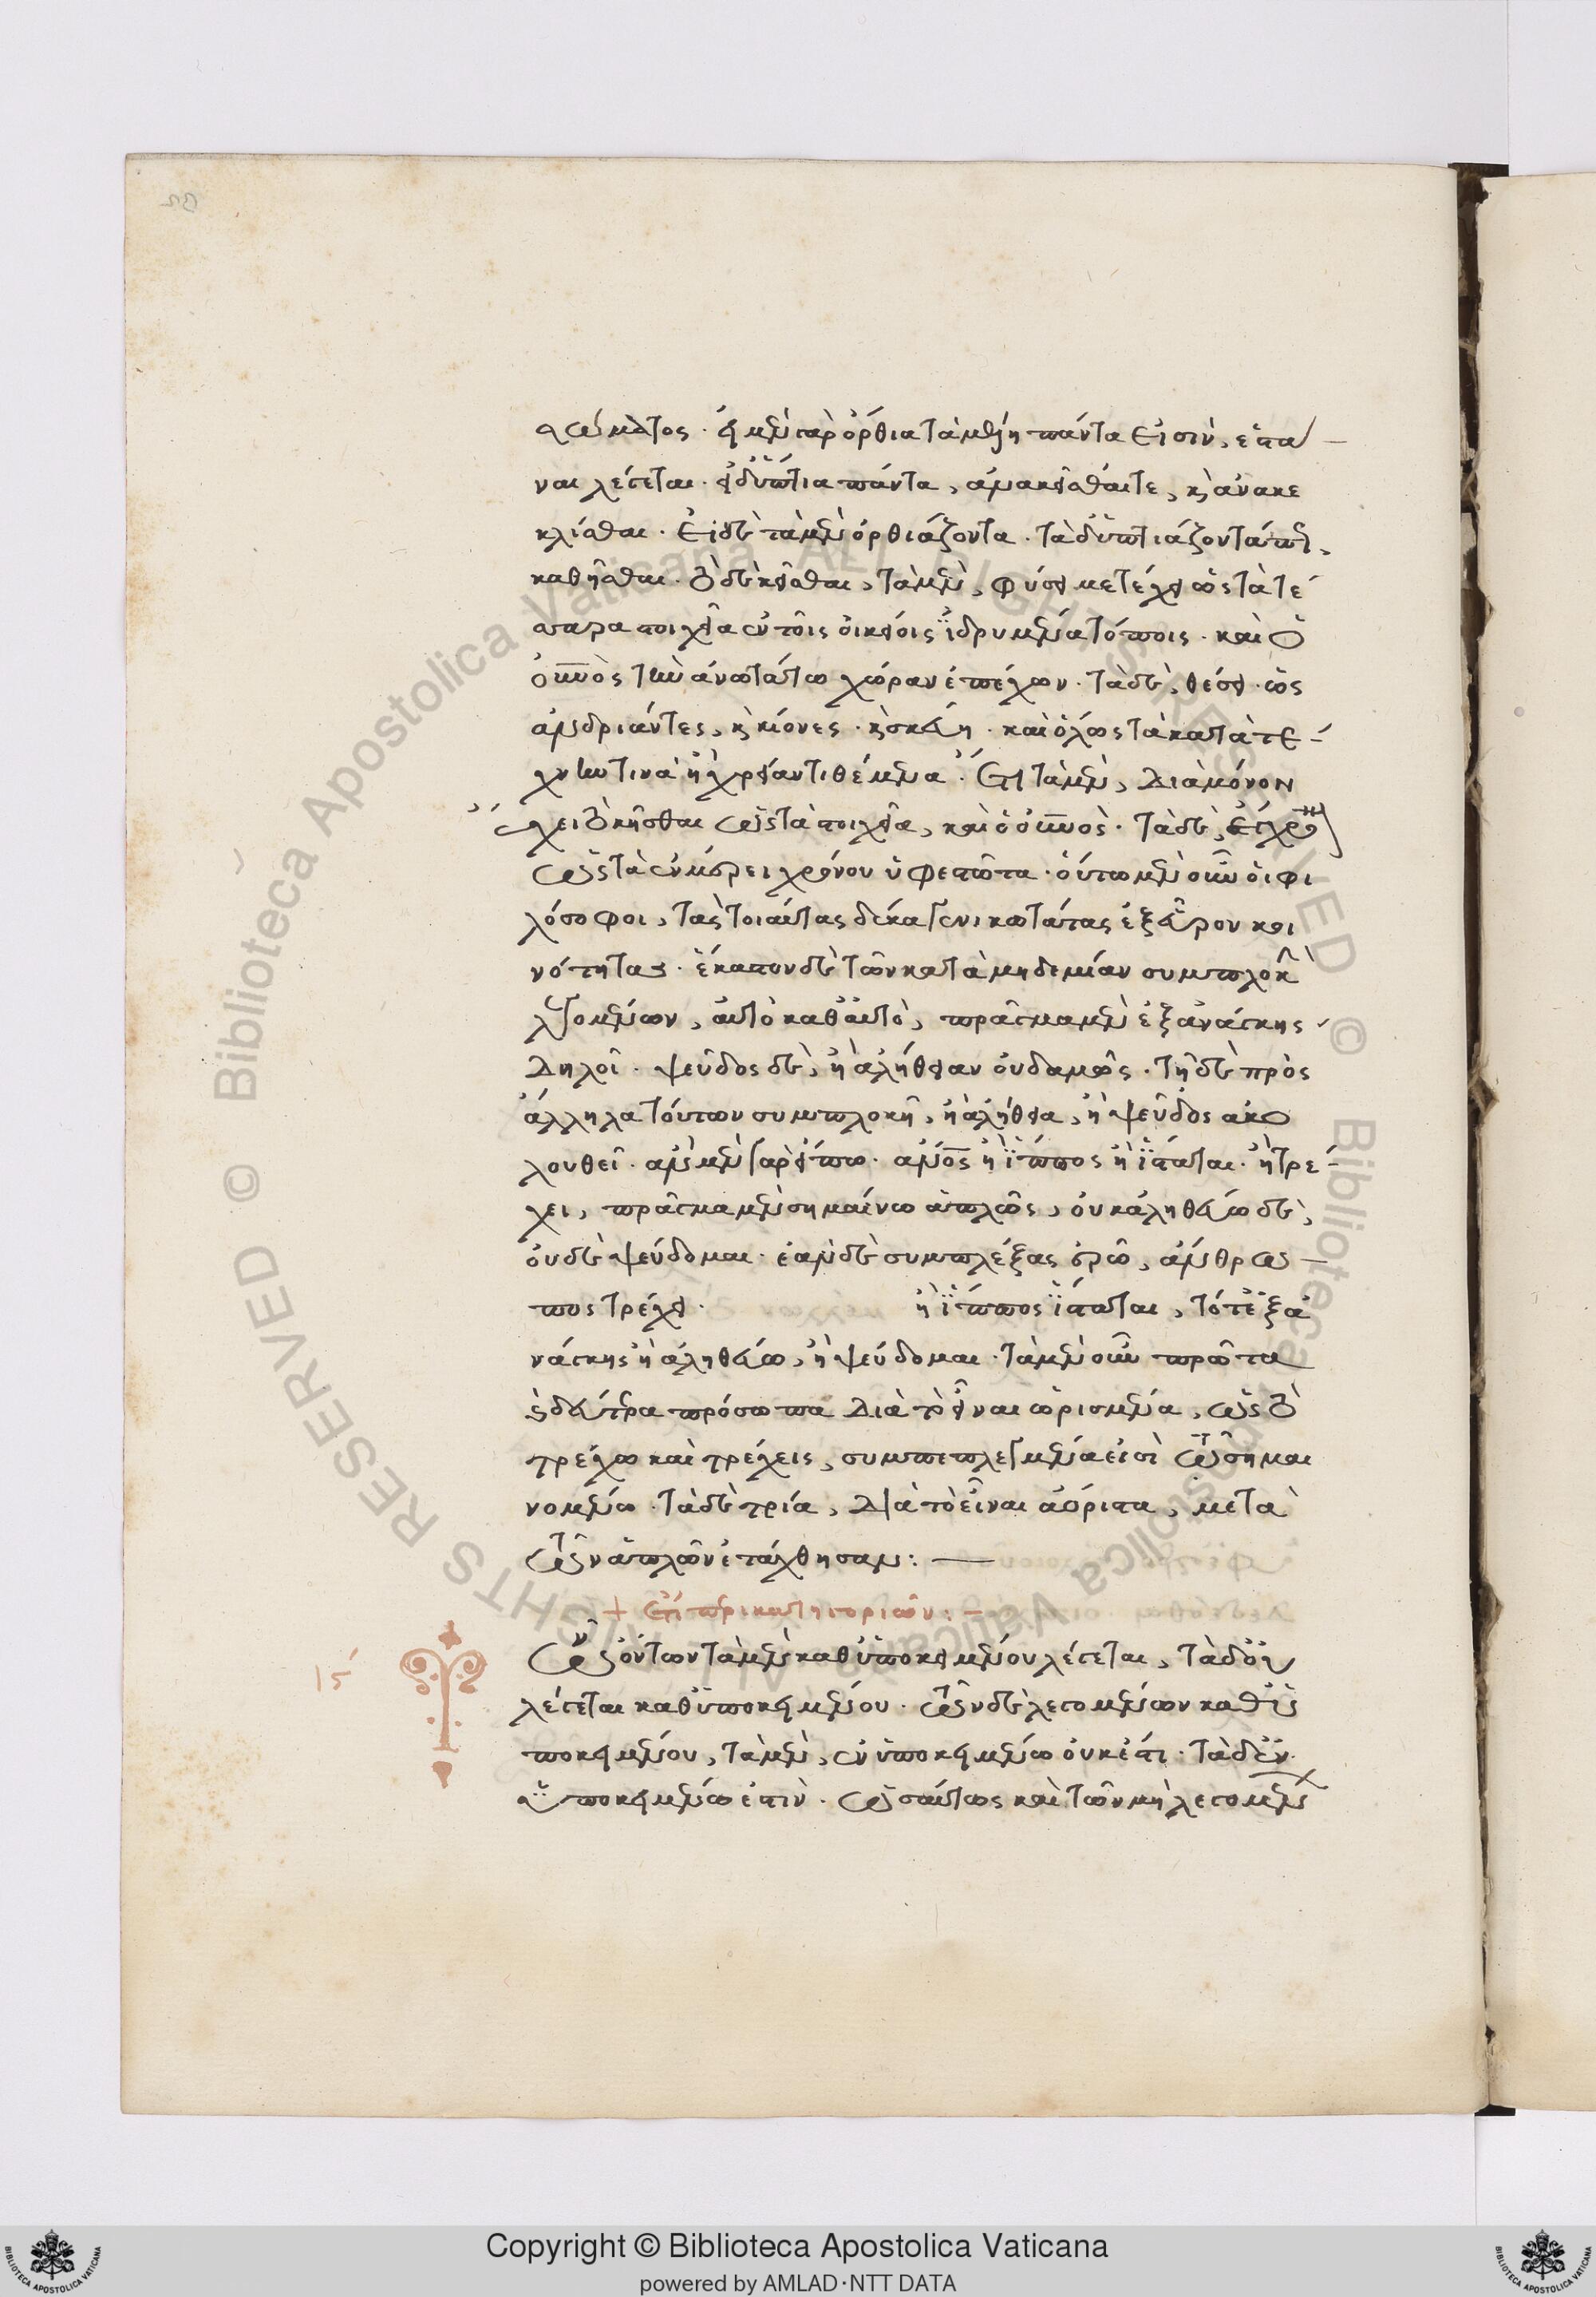 σώματος· εἰ μὲν γὰρ ὄρθια τὰ μέρη πάντα εἰσὶν, ἑστά
ναι λέγεται· εἰ δ' ὕπτια πάντα, ἀνακεῖσθαί τε, κ ἀνακε
κλίσθαι· εἰ δὲ τὰ μὲν ὀρθιάζοντα· τὰ δ' ὑπτιάζοντά ἐστι,
καθῆσθαι· τὸ δὲ κεῖσθαι, τὰ μὲν, φύσει μετέχει ὡς τὰ τέσ
σαρα στοιχεῖα ἐν τοῖς οἰκείοις ἱδρυμένα τόποις· καὶ ὁ
οὐνος τὴν ἀνωτάτω χώραν ἐπέχων· τὰ δὲ, θέσει· ὡς
ἀνδριάντες, κ κίονες· κ σκεύη· καὶ ὅλως τὰ κατὰ τέ
χνην τινὰ ἢ χρείαν τιθέμενα· ἔτι τὰ μὲν, διὰ μόνον
ἔχει τὸ κεῖσθαι ὡς τὰ στοιχεῖα, καὶ ὁ οὐνος· τὰ δὲ,
ὡς τὰ ἐν μέρει χρόνου ὑφεστῶτα· οὕτω μὲν οὖν οἱ φι
λόσοφοι, τὰς τοιαύτας δέκα γενικωτάτας ἐξεῦρον κοι
νότητας· ἕκαστον δὲ τῶν κατὰ μηδεμίαν συμπλοκὴν
λεγομένων, αὐτὸ καθ' αὑτὸ, πρᾶγμα μὲν ἐξ ἀνάγκης
δηλοῖ· ψεῦδος δὲ, ἢ ἀλήθειαν οὐδαμῶς· τῇ δὲ πρὸς
ἄλληλα τούτων συμπλοκῇ, ἢ ἀλήθεια, ἢ ψεῦδος ἀκο
λουθεῖ· ἂν μὲν γὰρ εἴπω· ἄνος ἢ ἵππος ἢ ἵσταται· ἢ τρέ
χει, πρᾶγμα μὲν σημαίνω ἁπλῶς, οὐκ ἀληθεύω δὲ,
οὐδὲ ψεύδομαι· ἐὰν δὲ συμπλέξας ἐρῶ, ἄνθρω
πος τρέχει· ἢ ἵππος ἵσταται, τότ' ἐξ ἀ
νάγκης ἢ ἀληθεύω, ἢ ψεύδομαι· τὰ μὲν οὖν πρῶτα
κ δεύτερα πρόσωπα διὰ τὸ εἶναι ὡρισμένα, ὡς τὸ
τρέχω καὶ τρέχεις, συμπεπλεγμένα εἰσὶ τῷ σημαι
νομένῳ· τὰ δὲ τρία, διὰ τὸ εἶναι ἀόριστα, μετὰ
τῶν ἁπλῶν ἐτάχθησαν: —
+ Ἔτι περὶ κατηγοριῶν: –
ις Τῶν ὄντων τὰ μὲν καθ' ὑποκειμένου λέγεται, τὰ δ' οὐ
λέγεται καθ' ὑποκειμένου· τῶν δὲ λεγομένων καθ' ὑ
ποκειμένου, τὰ μὲν, ἐν ὑποκειμένῳ οὐκ ἔστι· τὰ δ' ἐν
ὑποκειμένῳ ἐστὶν· ὡσαύτως καὶ τῶν μὴ λεγομένων
Copyright © Biblioteca Apostolica Vaticana
powered by AMLAD·NTT DATA